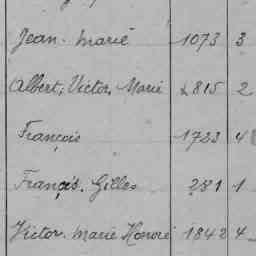 Jean-Marie 1073 3
Albert, Victor, Marie 2815 2
François 1723 4
François. Gilles 281 1
Victor. Marie Honoré 1842 4